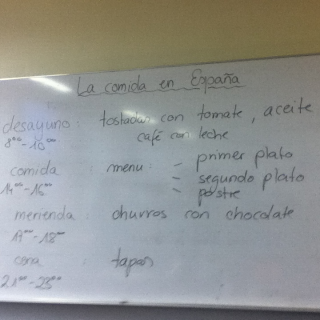 La comida en España
desayuno: tostadas con tomate, aceite
8⁰⁰-10⁰⁰ café con leche
comida : menu: - primer plato
14⁰⁰-16⁰⁰ - segundo plato
- postre
merienda: churros con chocolate
17⁰⁰-18⁰⁰
cena : tapas
21⁰⁰-23⁰⁰